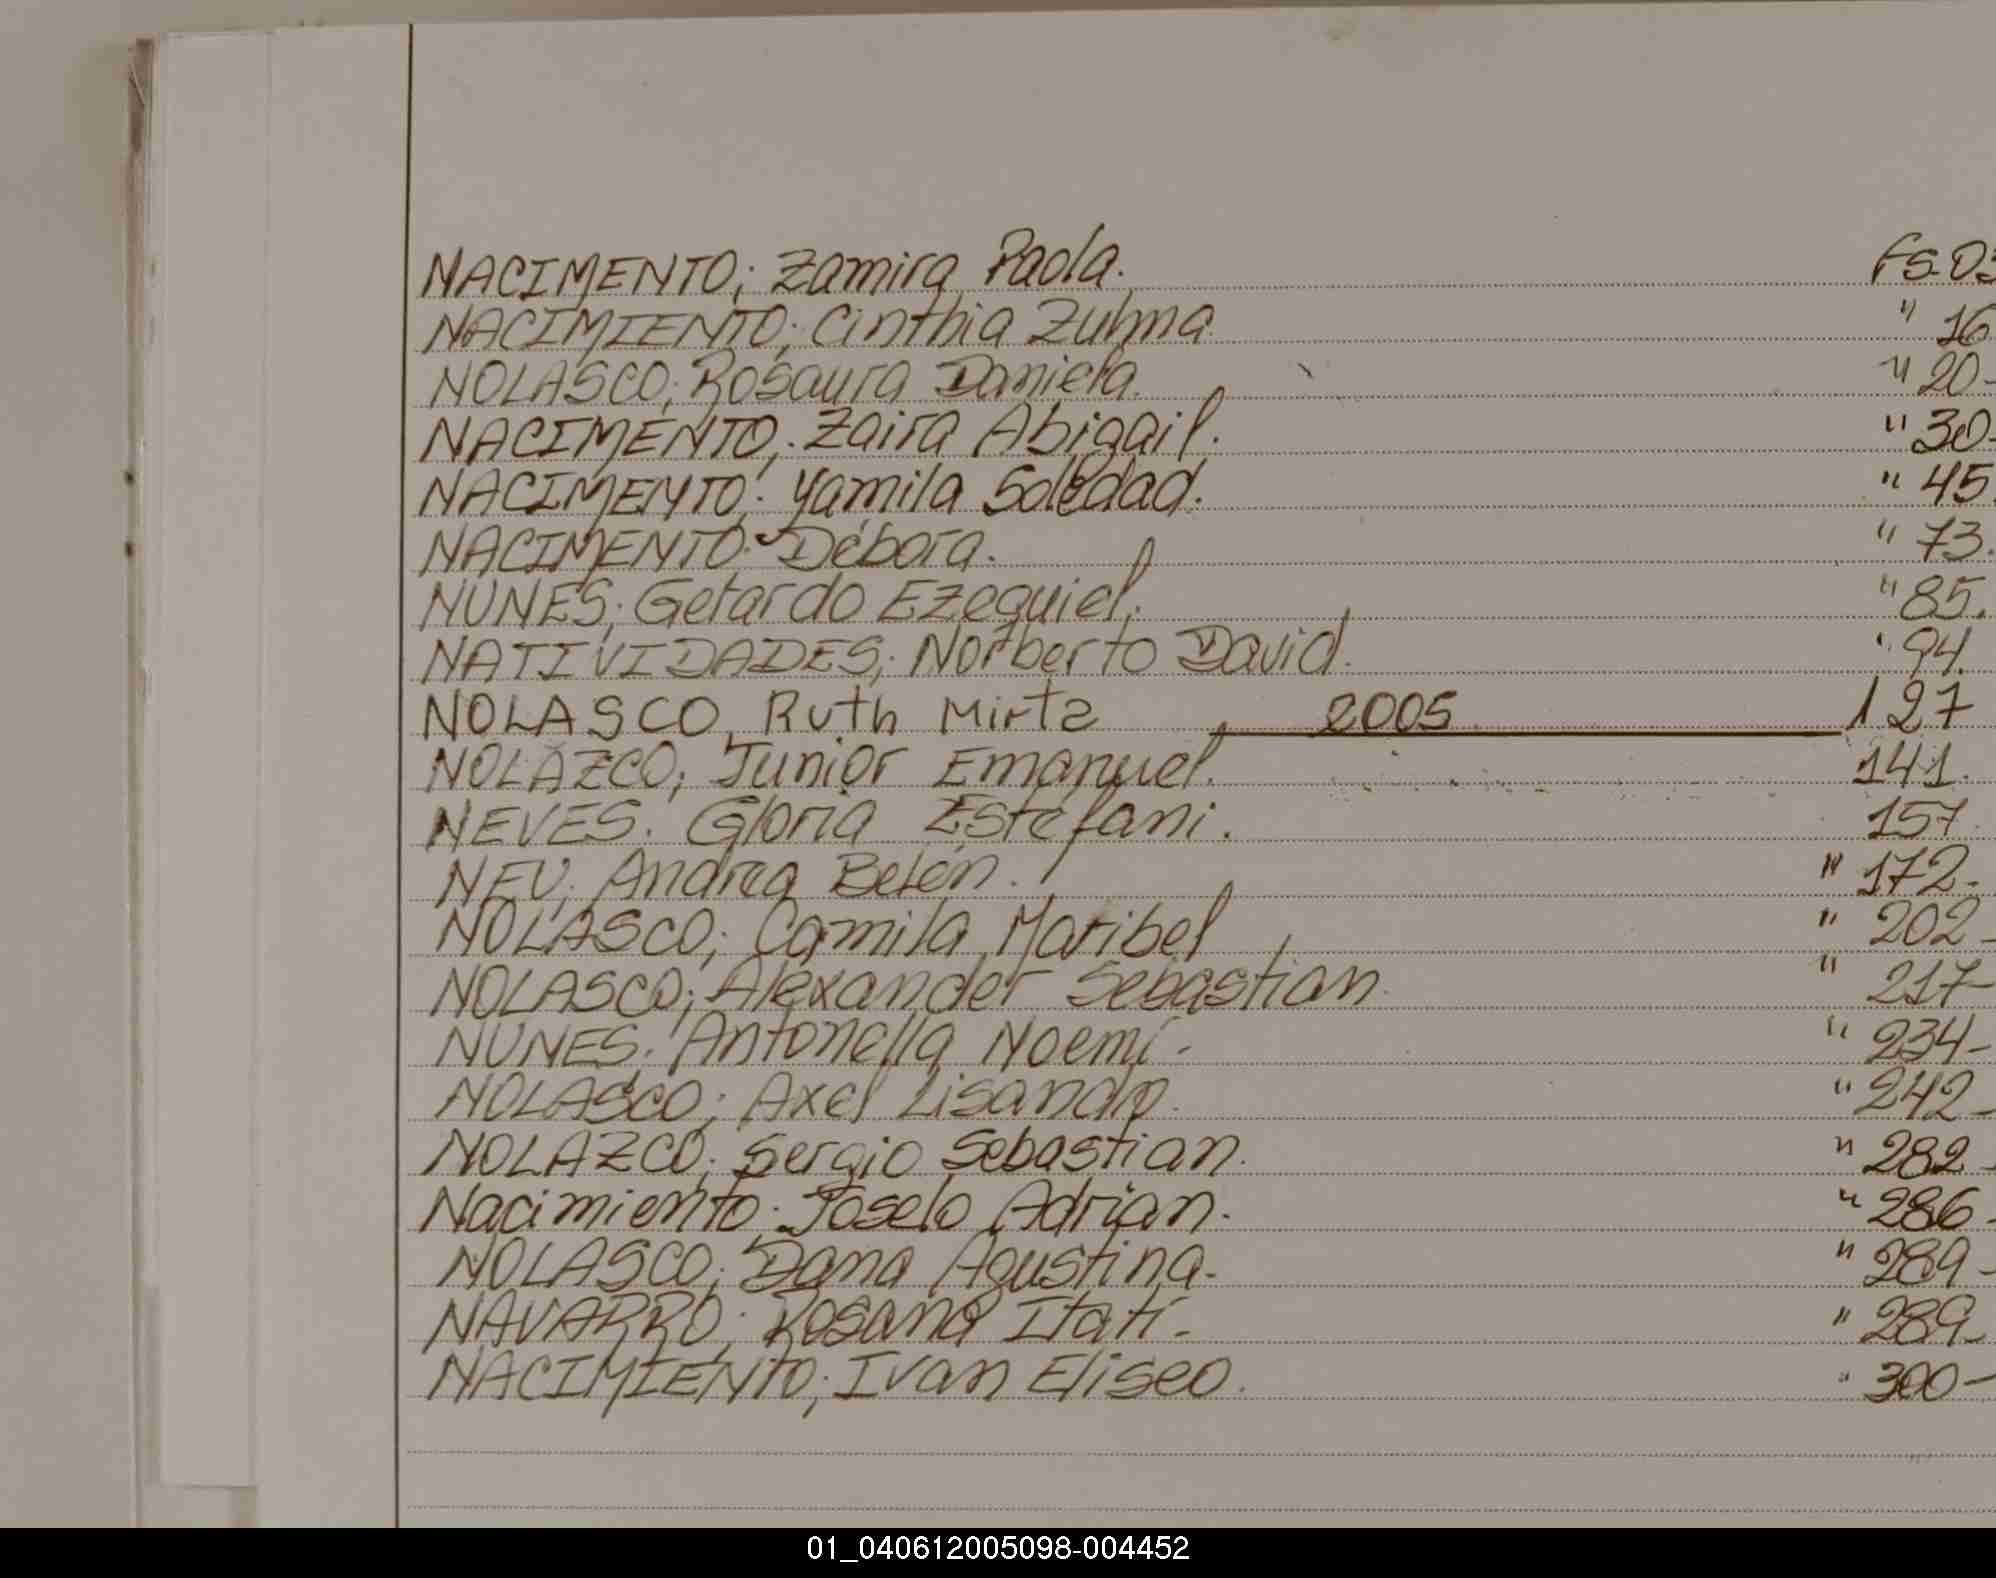 NACIMENTO; Zamira Paola. Fs. 03
NACIMIENTO; Cinthia Zulma. " 16
NOLASCO; Rosaura Daniela. " 20-
NACIMENTO; Zaira Abigail. " 30-
NACIMENTO; Yamila Soledad. " 45.
NACIMENTO. Débora. " 73.
NUNES; Gerardo Ezequiel. " 85.
NATIVIDADES; Norberto David. " 94.
NOLASCO, Ruth Mirta 2005 127
NOLAZCO; Junior Emanuel. 141.
NEVES. Gloria Estefani. 157.
NEU; Andrea Belén. " 172.
NOLASCO; Camila Maribel " 202-
NOLASCO; Alexander Sebastian. " 217-
NUNES. Antonella Noemí. " 234-
NOLASCO; Axel Lisandro. " 242-
NOLAZCO; Sergio Sebastian. " 282-
Nacimiento. Joselo Adrian. " 286-
NOLASCO; Dana Agustina. " 289-
NAVARRO; Rosana Itatí- " 289-
NACIMIENTO; Ivan Eliseo. " 300-
01_040612005098-004452